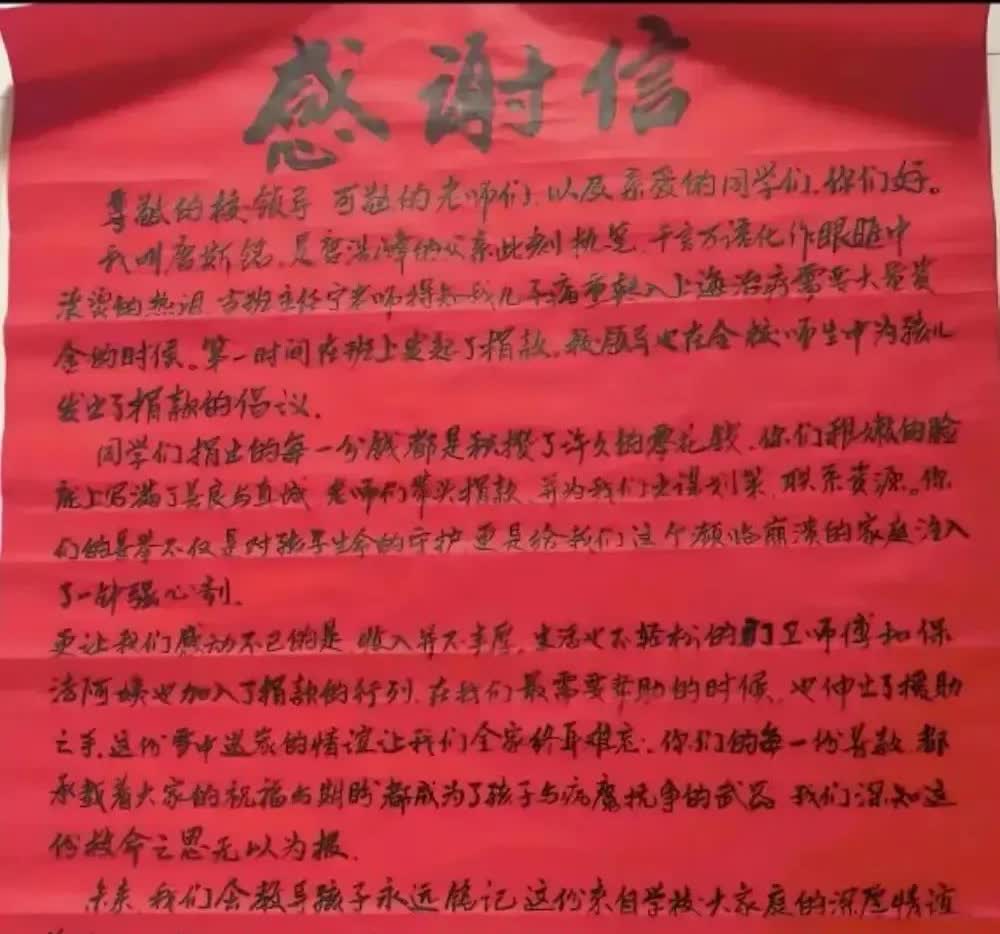 感谢信
尊敬的校领导 可敬的老师们,以及亲爱的同学们,你们好。
我叫唐斯铭,是唐浩峰的父亲此刻执笔,千言万语化作眼眶中
滚烫的热泪 当班主任宁老师得知我儿子病重转入上海治病需要大量资
金的时候。第一时间在班上发起了捐款。校领导也在全校师生中为孩儿
发出了捐款的倡议.
同学们捐出的每一分钱都是积攒了许久的零花钱,你们稚嫩的脸
庞上写满了善良与真诚 老师们带头捐款,并为我们出谋划策,联系资源。你
们的善举不仅是对孩子生命的守护更是给我们这个濒临崩溃的家庭注入
了一针强心剂.
更让我们感动不已的是 收入并不丰厚,生活也不轻松的门卫师傅和保
洁阿姨也加入了捐款的行列,在我们最需要帮助的时候,也伸出了援助
之手,这份雪中送炭的情谊让我们全家终身难忘.你们的每一份善款,都
承载着大家的祝福与期盼都成为了孩子与病魔抗争的武器 我们深知这
份救命之恩无以为报.
未来,我们会教导孩子永远铭记这份来自学校大家庭的深厚情谊